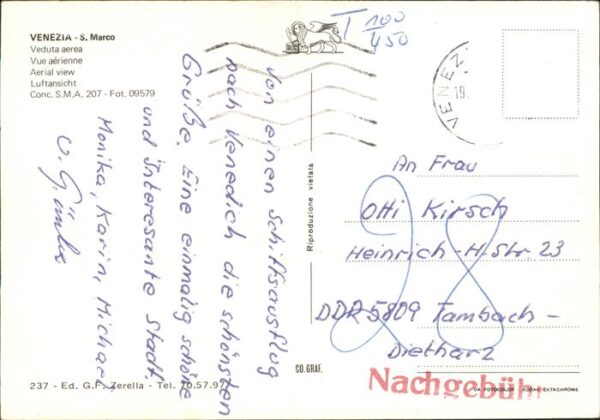 VENEZIA - S. Marco
Veduta aerea
Vue aérienne
Aerial view
Luftansicht
Conc. S.M.A. 207 - Fot. 09579
T 100
450
VENEZ
19.
Von einen Schiffsausflug
nach Venedich die schönsten
Grüße. Eine einmalig schöne
und interesante Stadt.
Monika, Karin, Michael
u. Günter
Riproduzione vietata
An Frau
Otti Kirsch
Heinrich-H.Str. 23
DDR 5809 Tambach-
Dietharz
28
CO.GRAF.
Nachgebühr
237 - Ed. G.F. Zerella - Tel. 70.57.97
DA FOTOCOLOR KODAK EKTACHROME